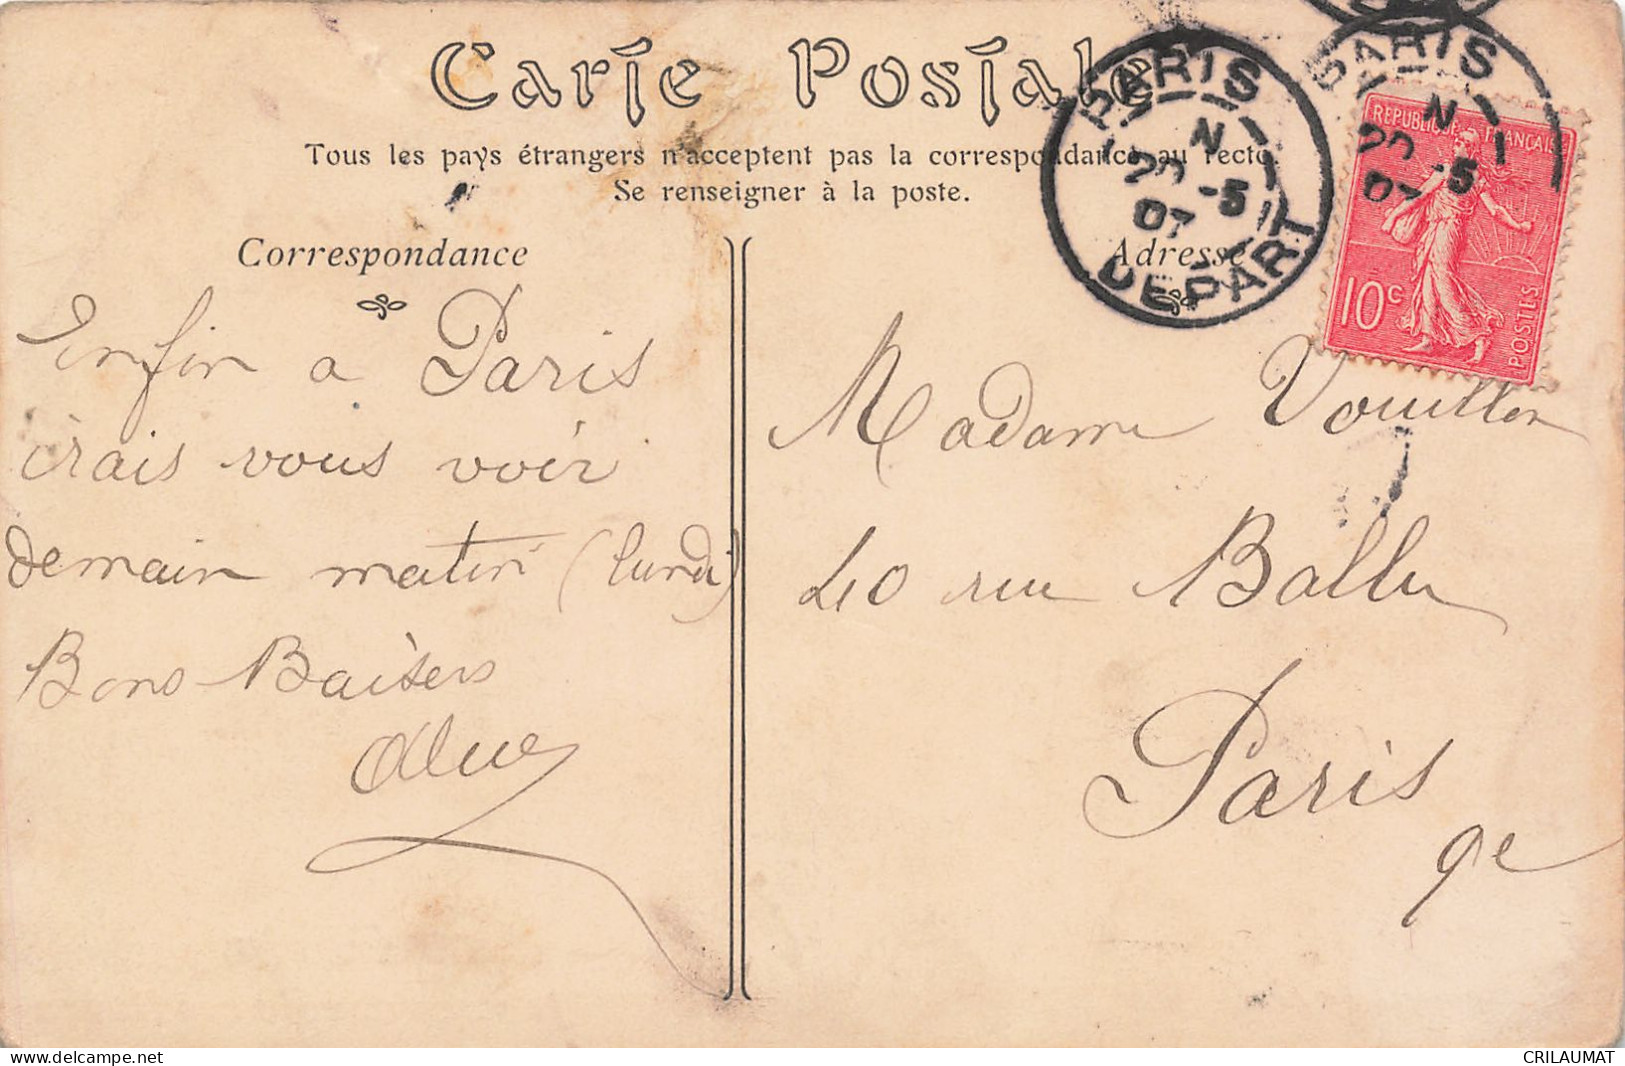 Carte Postale
Tous les pays étrangers n'acceptent pas la correspondance au recto.
Se renseigner à la poste.
Correspondance
Adresse
PARIS
N
20 -5
07
DEPART
PARIS
N
20 -5
07
REPUBLIQUE FRANÇAISE
10c
POSTES
Enfin a Paris
irais vous voir
demain matin (lundi)
Bons Baisers
Madame Vouillon
40 rue Ballu
Paris
9e
delcampe.net
CRILAUMAT